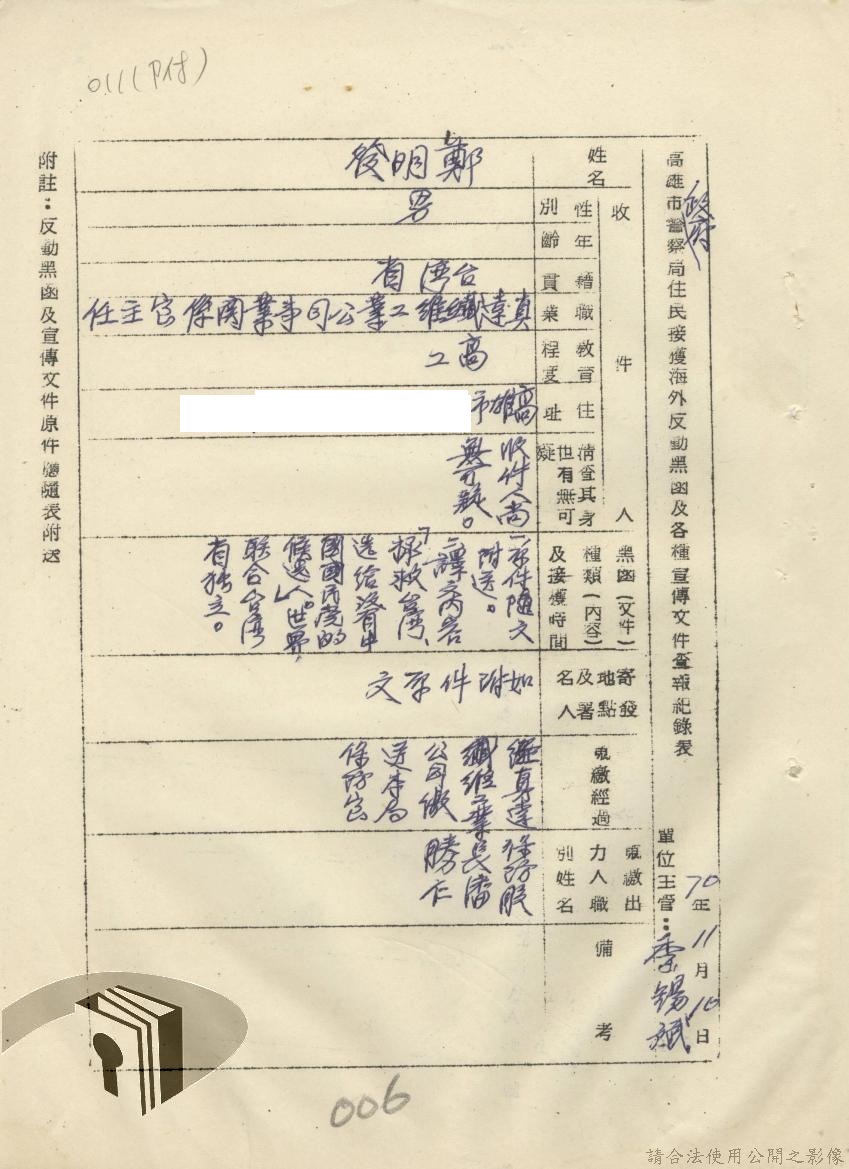 0111(P付)
高雄市政府警察局住民接獲海外反動黑函及各種宣傳文件查報紀錄表
單位主管：
70年11月10日
收件人
姓名
鄭明發
性別
男
年齡
籍貫
台湾省
職業
真達纖維工業公司事業関係室主任
教育程度
高工
住址
高雄市
清查其身世有無可疑
收件人尚
無可疑。
黑函(文件)種類(內容)及接獲時間
一原件隨文
附送。
二譯文內容
「拯救台湾、
选給沒有中
國國民党的
候选人」。世界
联合台湾
有独立。
寄發地點及署名人
如附件原文
蒐繳經過
經真達
纖維工業
公司繳
送本局
保防室
蒐繳出力人職別姓名
保防股
長潘
勝仁
備考
附註：反動黑函及宣傳文件原件應隨表附送
006
請合法使用公開之影像